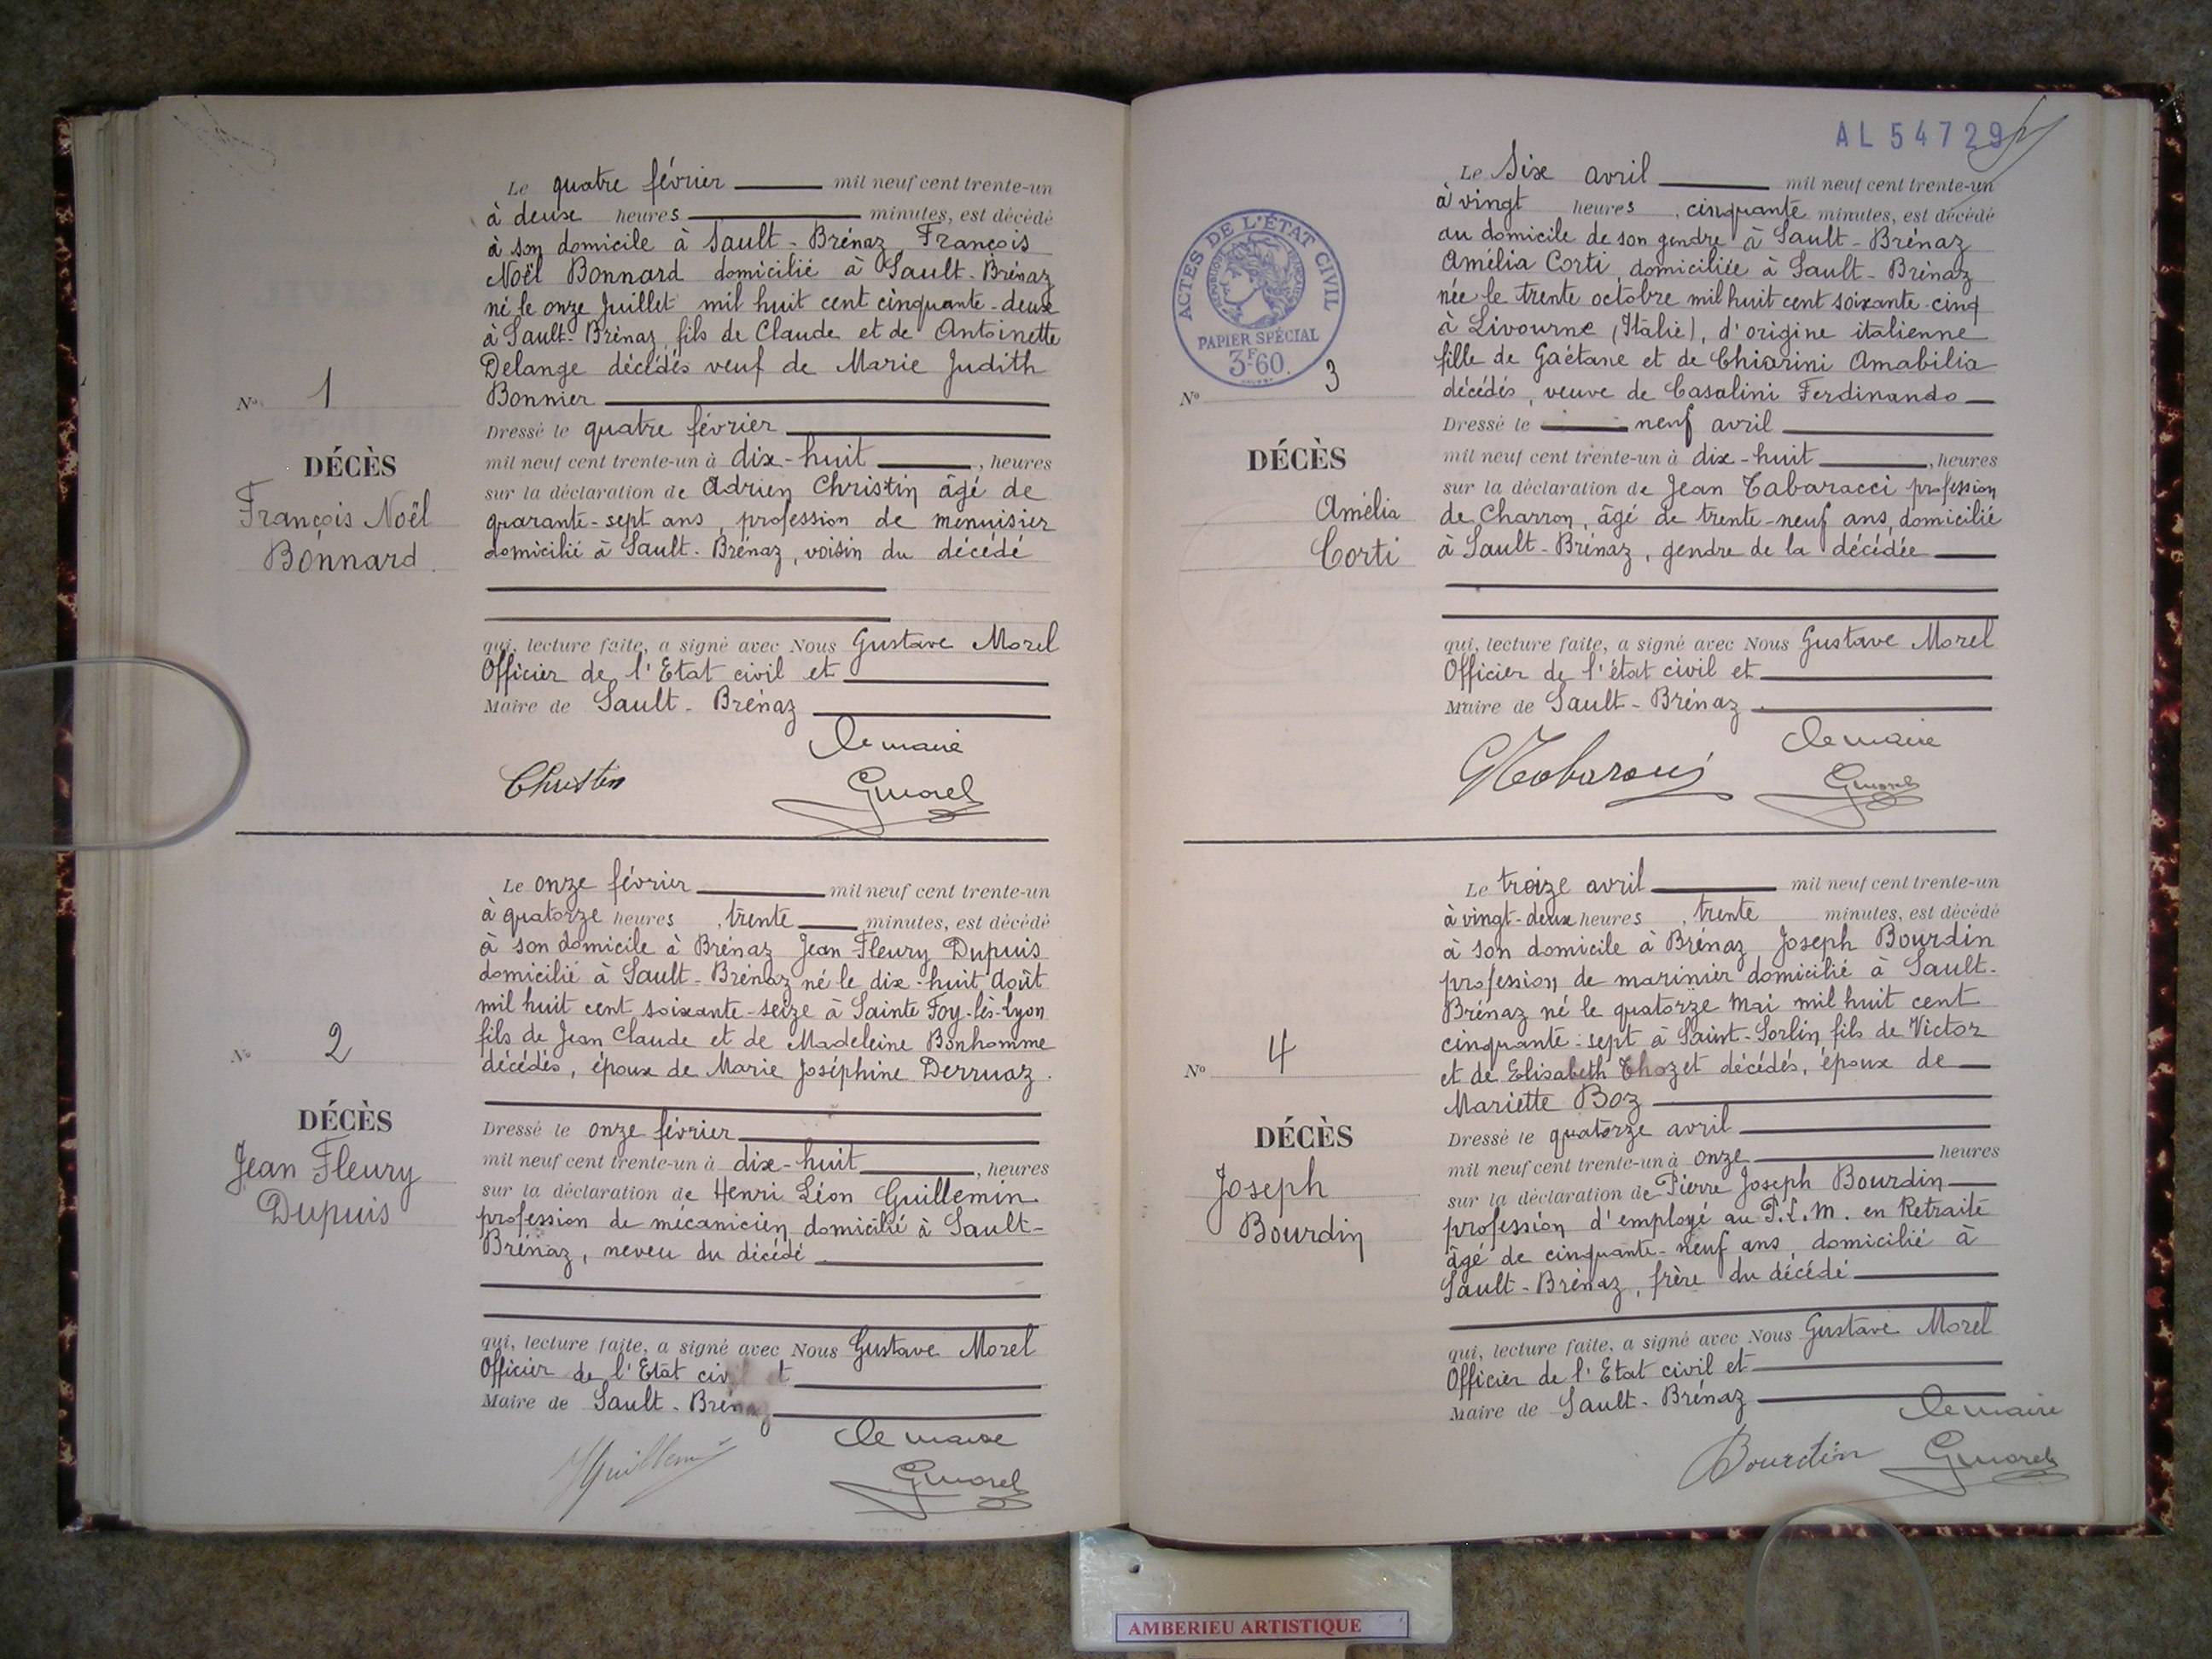 Le quatre février mil neuf cent trente-un
à deux heures minutes, est décédé
à son domicile à Sault-Brénaz François
Noël Bonnard domicilié à Sault-Brénaz
né le onze Juillet mil huit cent cinquante-deux
à Sault-Brénaz, fils de Claude et de Antoinette
Delange décédés veuf de Marie Judith
Bonnier
Dressé le quatre février
mil neuf cent trente-un à dix-huit, heures
sur la déclaration de Adrien Christin âgé de
quarante-sept ans, profession de menuisier
domicilié à Sault-Brénaz, voisin du décédé
qui, lecture faite, a signé avec Nous Gustave Morel
Officier de l'Etat civil et
Maire de Sault-Brénaz
Le maire
Christin
GMorel
N° 1
DÉCÈS
François Noël
Bonnard.
Le onze février mil neuf cent trente-un
à quatorze heures, trente minutes, est décédé
à son domicile à Brénaz Jean Fleury Dupuis
domicilié à Sault-Brénaz né le dix-huit Août
mil huit cent soixante-seize à Sainte Foy-lès-Lyon
fils de Jean Claude et de Madeleine Bonhomme
décédés, époux de Marie Joséphine Derruaz.
Dressé le onze février
mil neuf cent trente-un à dix-huit, heures
sur la déclaration de Henri Léon Guillemin
profession de mécanicien domicilié à Sault-
Brénaz, neveu du décédé
qui, lecture faite, a signé avec Nous Gustave Morel
Officier de l'Etat civil et
Maire de Sault-Brénaz
Le maire
HGuillemin
GMorel
N° 2
DÉCÈS
Jean Fleury
Dupuis
AL 54729
Le Six avril mil neuf cent trente-un
à vingt heures, cinquante minutes, est décédé
au domicile de son gendre à Sault-Brénaz
Amélia Corti domiciliée à Sault-Brénaz
née le trente octobre mil huit cent soixante-cinq
à Livourne (Italie), d'origine italienne
fille de Gaétane et de Chiarini Amabilia
décédés, veuve de Casalini Ferdinando
Dressé le neuf avril
mil neuf cent trente-un à dix-huit, heures
sur la déclaration de Jean Tabaracci profession
de Charron, âgé de trente-neuf ans, domicilié
à Sault-Brénaz, gendre de la décédée
qui, lecture faite, a signé avec Nous Gustave Morel
Officier de l'état civil et
Maire de Sault-Brénaz.
Le maire
GMorel
ACTES DE L'ÉTAT CIVIL
RÉPUBLIQUE FRANÇAISE
PAPIER SPÉCIAL
3F60.
N° 3
DÉCÈS
Amélia
Corti
Le treize avril mil neuf cent trente-un
à vingt-deux heures, trente minutes, est décédé
à son domicile à Brénaz Joseph Bourdin
profession de marinier domicilié à Sault-
Brénaz né le quatorze Mai mil huit cent
cinquante-sept à Saint-Sorlin, fils de Victor
et de Elisabeth Thozet décédés, époux de
Mariette Boz
Dressé le quatorze avril
mil neuf cent trente-un à onze heures
sur la déclaration de Pierre Joseph Bourdin
profession d'employé au P.L.M. en Retraite
âgé de cinquante-neuf ans, domicilié à
Sault-Brénaz, frère du décédé
qui, lecture faite, a signé avec Nous Gustave Morel
Officier de l'Etat civil et
Maire de Sault-Brénaz
Le maire
Bourdin
GMorel
N° 4
DÉCÈS
Joseph
Bourdin
AMBERIEU ARTISTIQUE